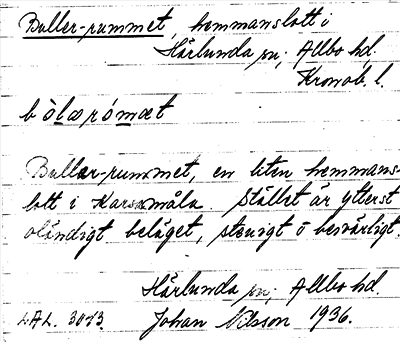 Buller-rummet, hemmanslott i
Härlunda sn; Allbo hd.
Kronob. l.
bòlarómæt
Buller-rummet, en liten hemmans-
lott i Karsamåla. Stället är ytterst
oländigt beläget, stenigt o besvärligt.
Härlunda sn; Allbo hd.
L.A.L. 3073. Johan Nilsson 1936.